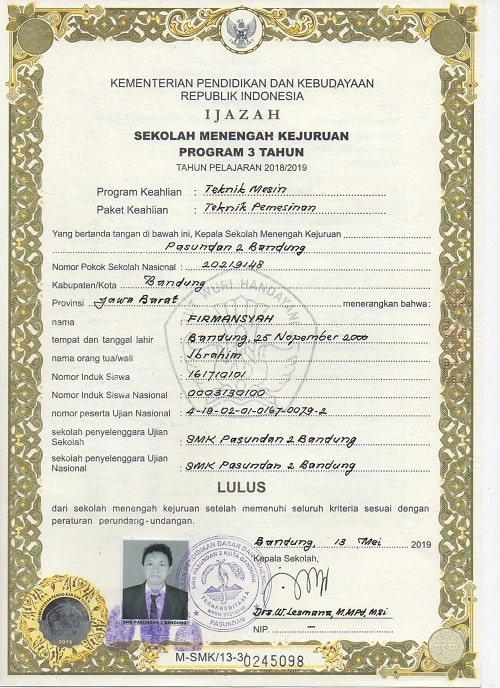 KEMENTERIAN PENDIDIKAN DAN KEBUDAYAAN
REPUBLIK INDONESIA
IJAZAH
SEKOLAH MENENGAH KEJURUAN
PROGRAM 3 TAHUN
TAHUN PELAJARAN 2018/2019
Program Keahlian : Teknik Mesin
Paket Keahlian : Teknik Pemesinan
Yang bertanda tangan di bawah ini, Kepala Sekolah Menengah Kejuruan
Pasundan 2 Bandung
Nomor Pokok Sekolah Nasional : 20219148
Kabupaten/Kota : Bandung
Provinsi : Jawa Barat menerangkan bahwa:
TUT WURI HANDAYANI
nama : FIRMANSYAH
tempat dan tanggal lahir : Bandung, 25 Nopember 2000
nama orang tua/wali : Ibrahim
Nomor Induk Siswa : 161710101
Nomor Induk Siswa Nasional : 0003130100
nomor peserta Ujian Nasional : 4-19-02-01-0167-0079-2
sekolah penyelenggara Ujian
Sekolah : SMK Pasundan 2 Bandung
sekolah penyelenggara Ujian
Nasional : SMK Pasundan 2 Bandung
LULUS
dari sekolah menengah kejuruan setelah memenuhi seluruh kriteria sesuai dengan
peraturan perundang-undangan.
Bandung, 13 Mei 2019
Kepala Sekolah,
PENDIDIKAN DASAR DAN
SMK PASUNDAN 2 KOTA BANDUNG
TERAKREDITASI
PASUNDAN
SMK PASUNDAN 2 BANDUNG
Drs. W. Lesmana, M.MPd, M.Si
NIP. –
2019
M-SMK/13-3 0245098